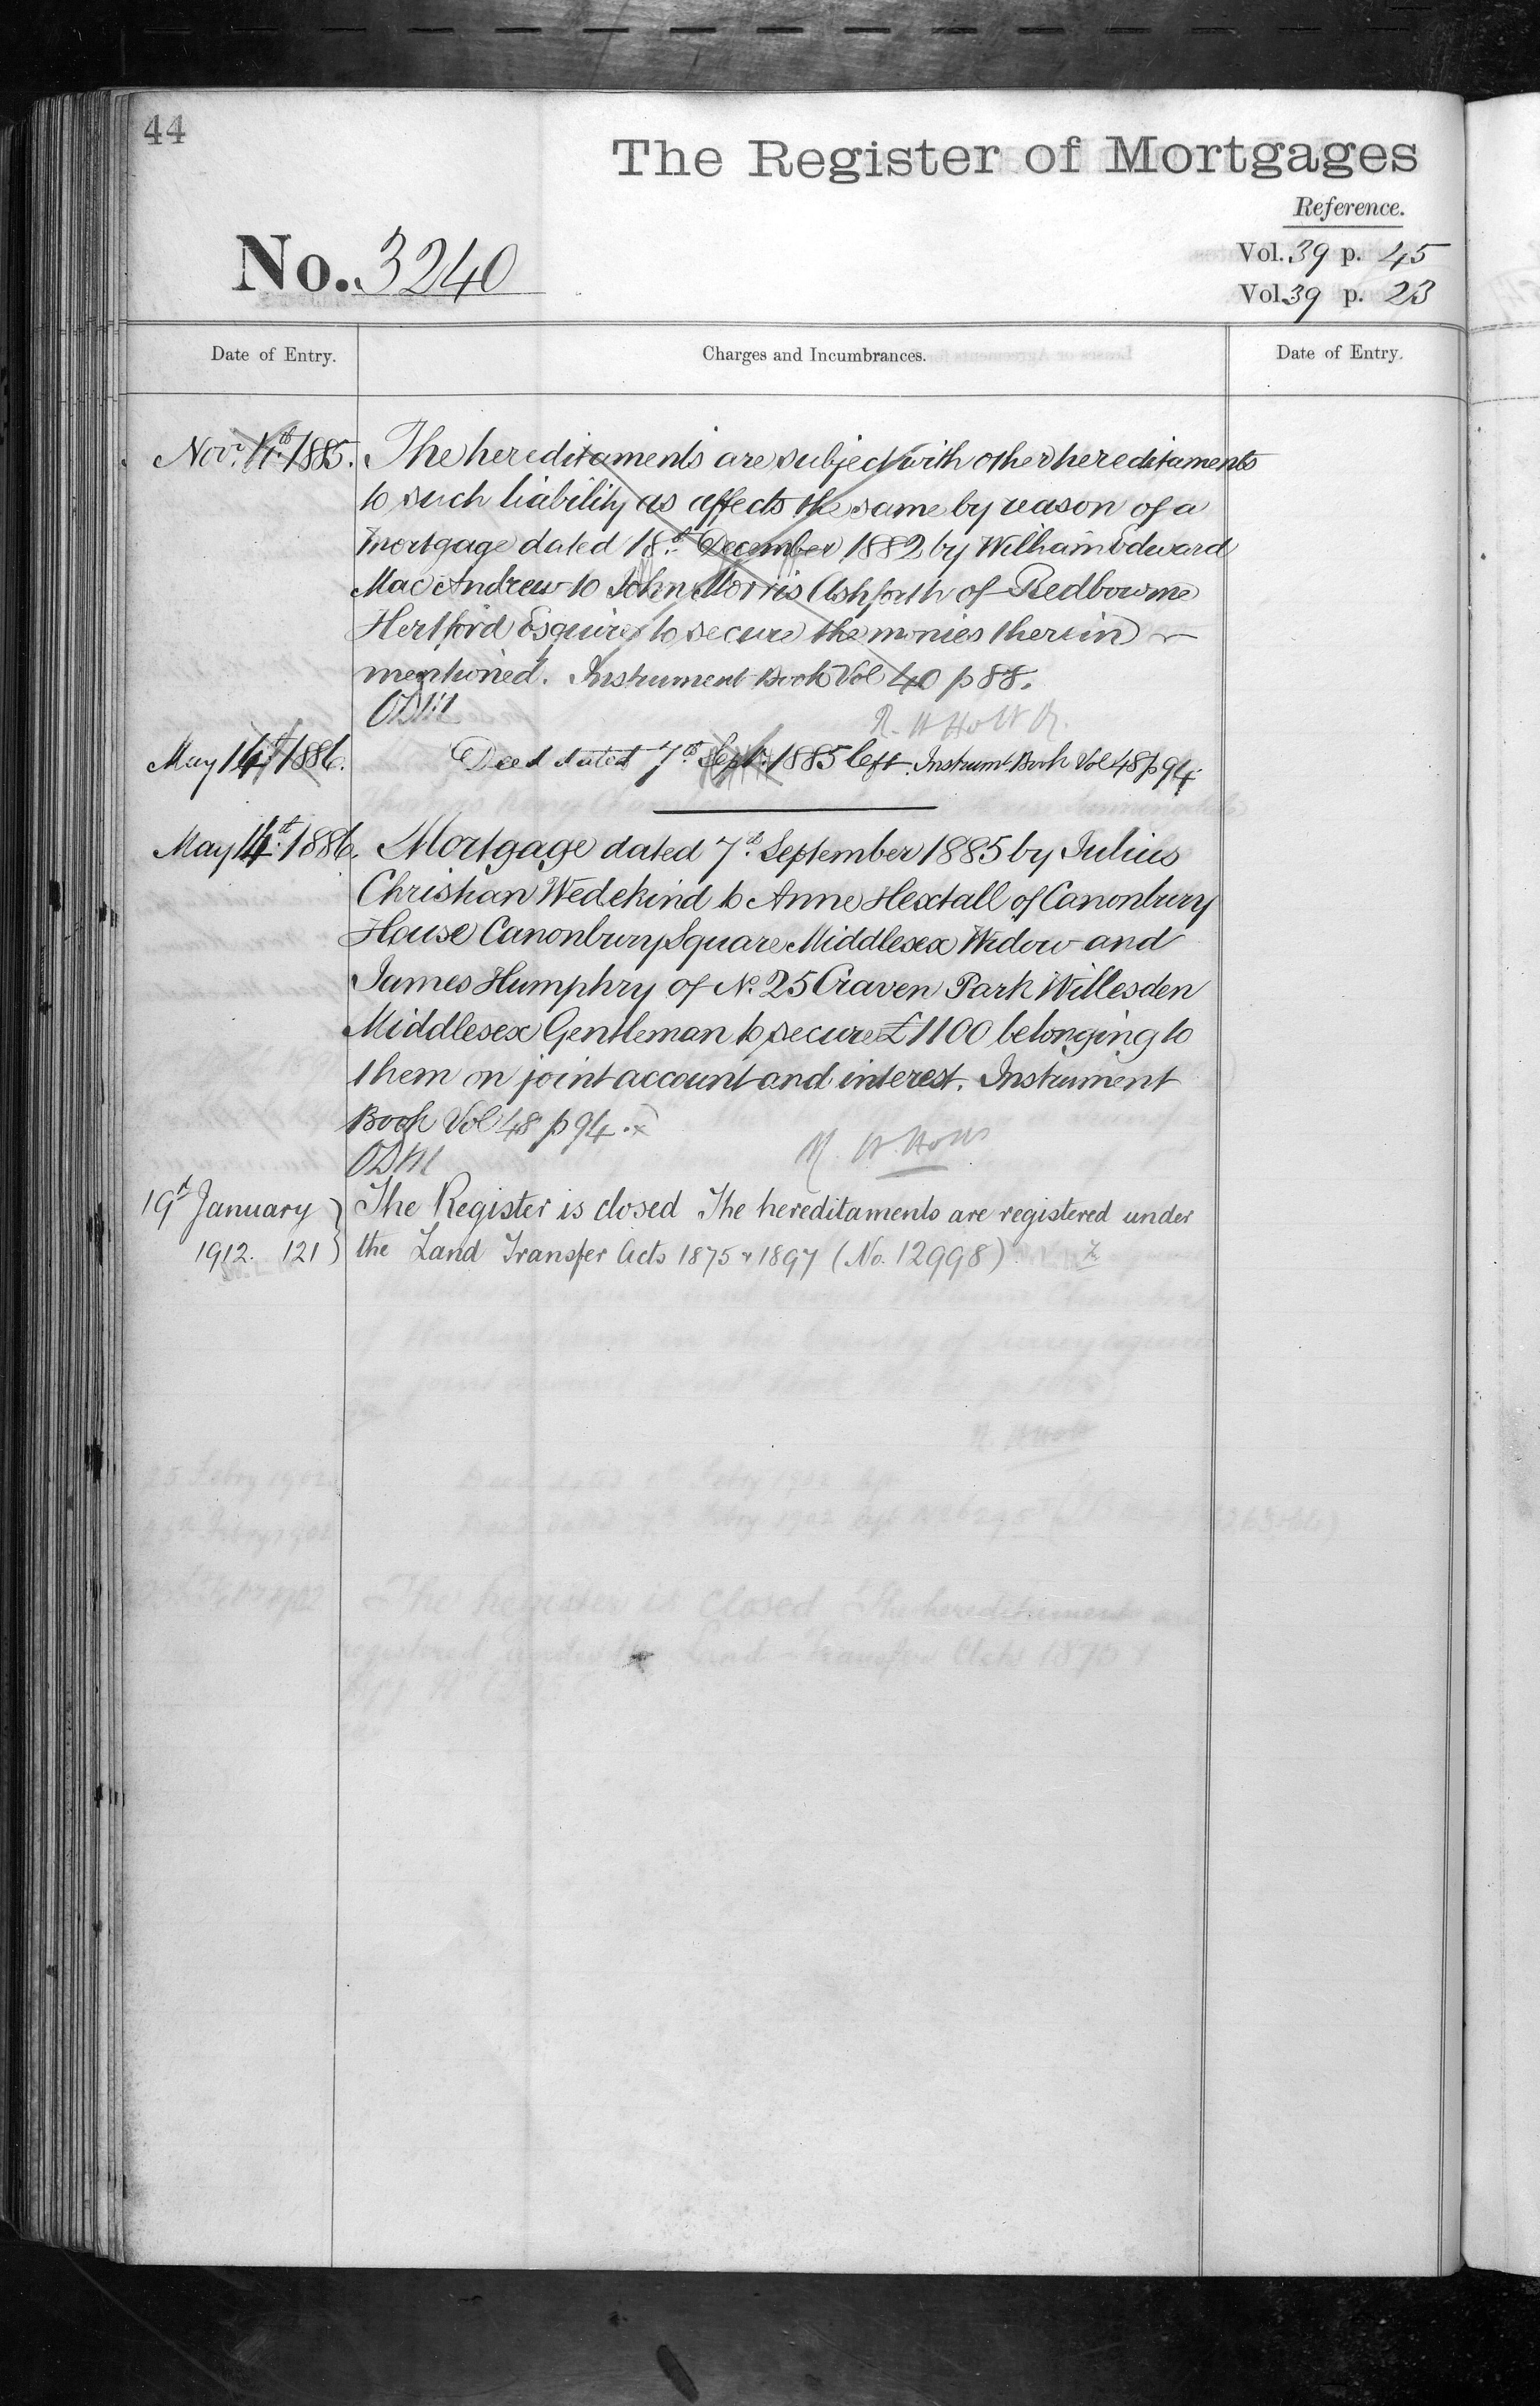 44
The Register of Mortgages
Reference.
No. 3240
Vol. 39 p. 45
Vol. 39 p. 23
Date of Entry. Charges and Incumbrances. Date of Entry.
Novr. 11th 1885. The hereditaments are subject with other hereditaments
to such liability as affects the same by reason of a
Mortgage dated 18th December 1882 by William Edward
Mac Andrew to John Morris Ashforth of Redbourne
Hertford Esquire to secure the monies therein
mentioned. Instrument Book Vol 40 p 88.
R. H Holt
May 14th 1886. Deed dated 7th Sept. 1885 left. Instrumt. Book Vol 48 p 94.
May 14th 1886. Mortgage dated 7th September 1885 by Julius
Christian Wedekind to Anne Hextall of Canonbury
House Canonbury Square Middlesex Widow and
James Humphry of No. 25 Craven Park Willesden
Middlesex Gentleman to secure £1100 belonging to
them on joint account and interest. Instrument
Book Vol 48 p 94.
R. H. Holt
19th January The Register is closed The hereditaments are registered under
1912. 121 the Land Transfer Acts 1875 & 1897 (No. 12998)